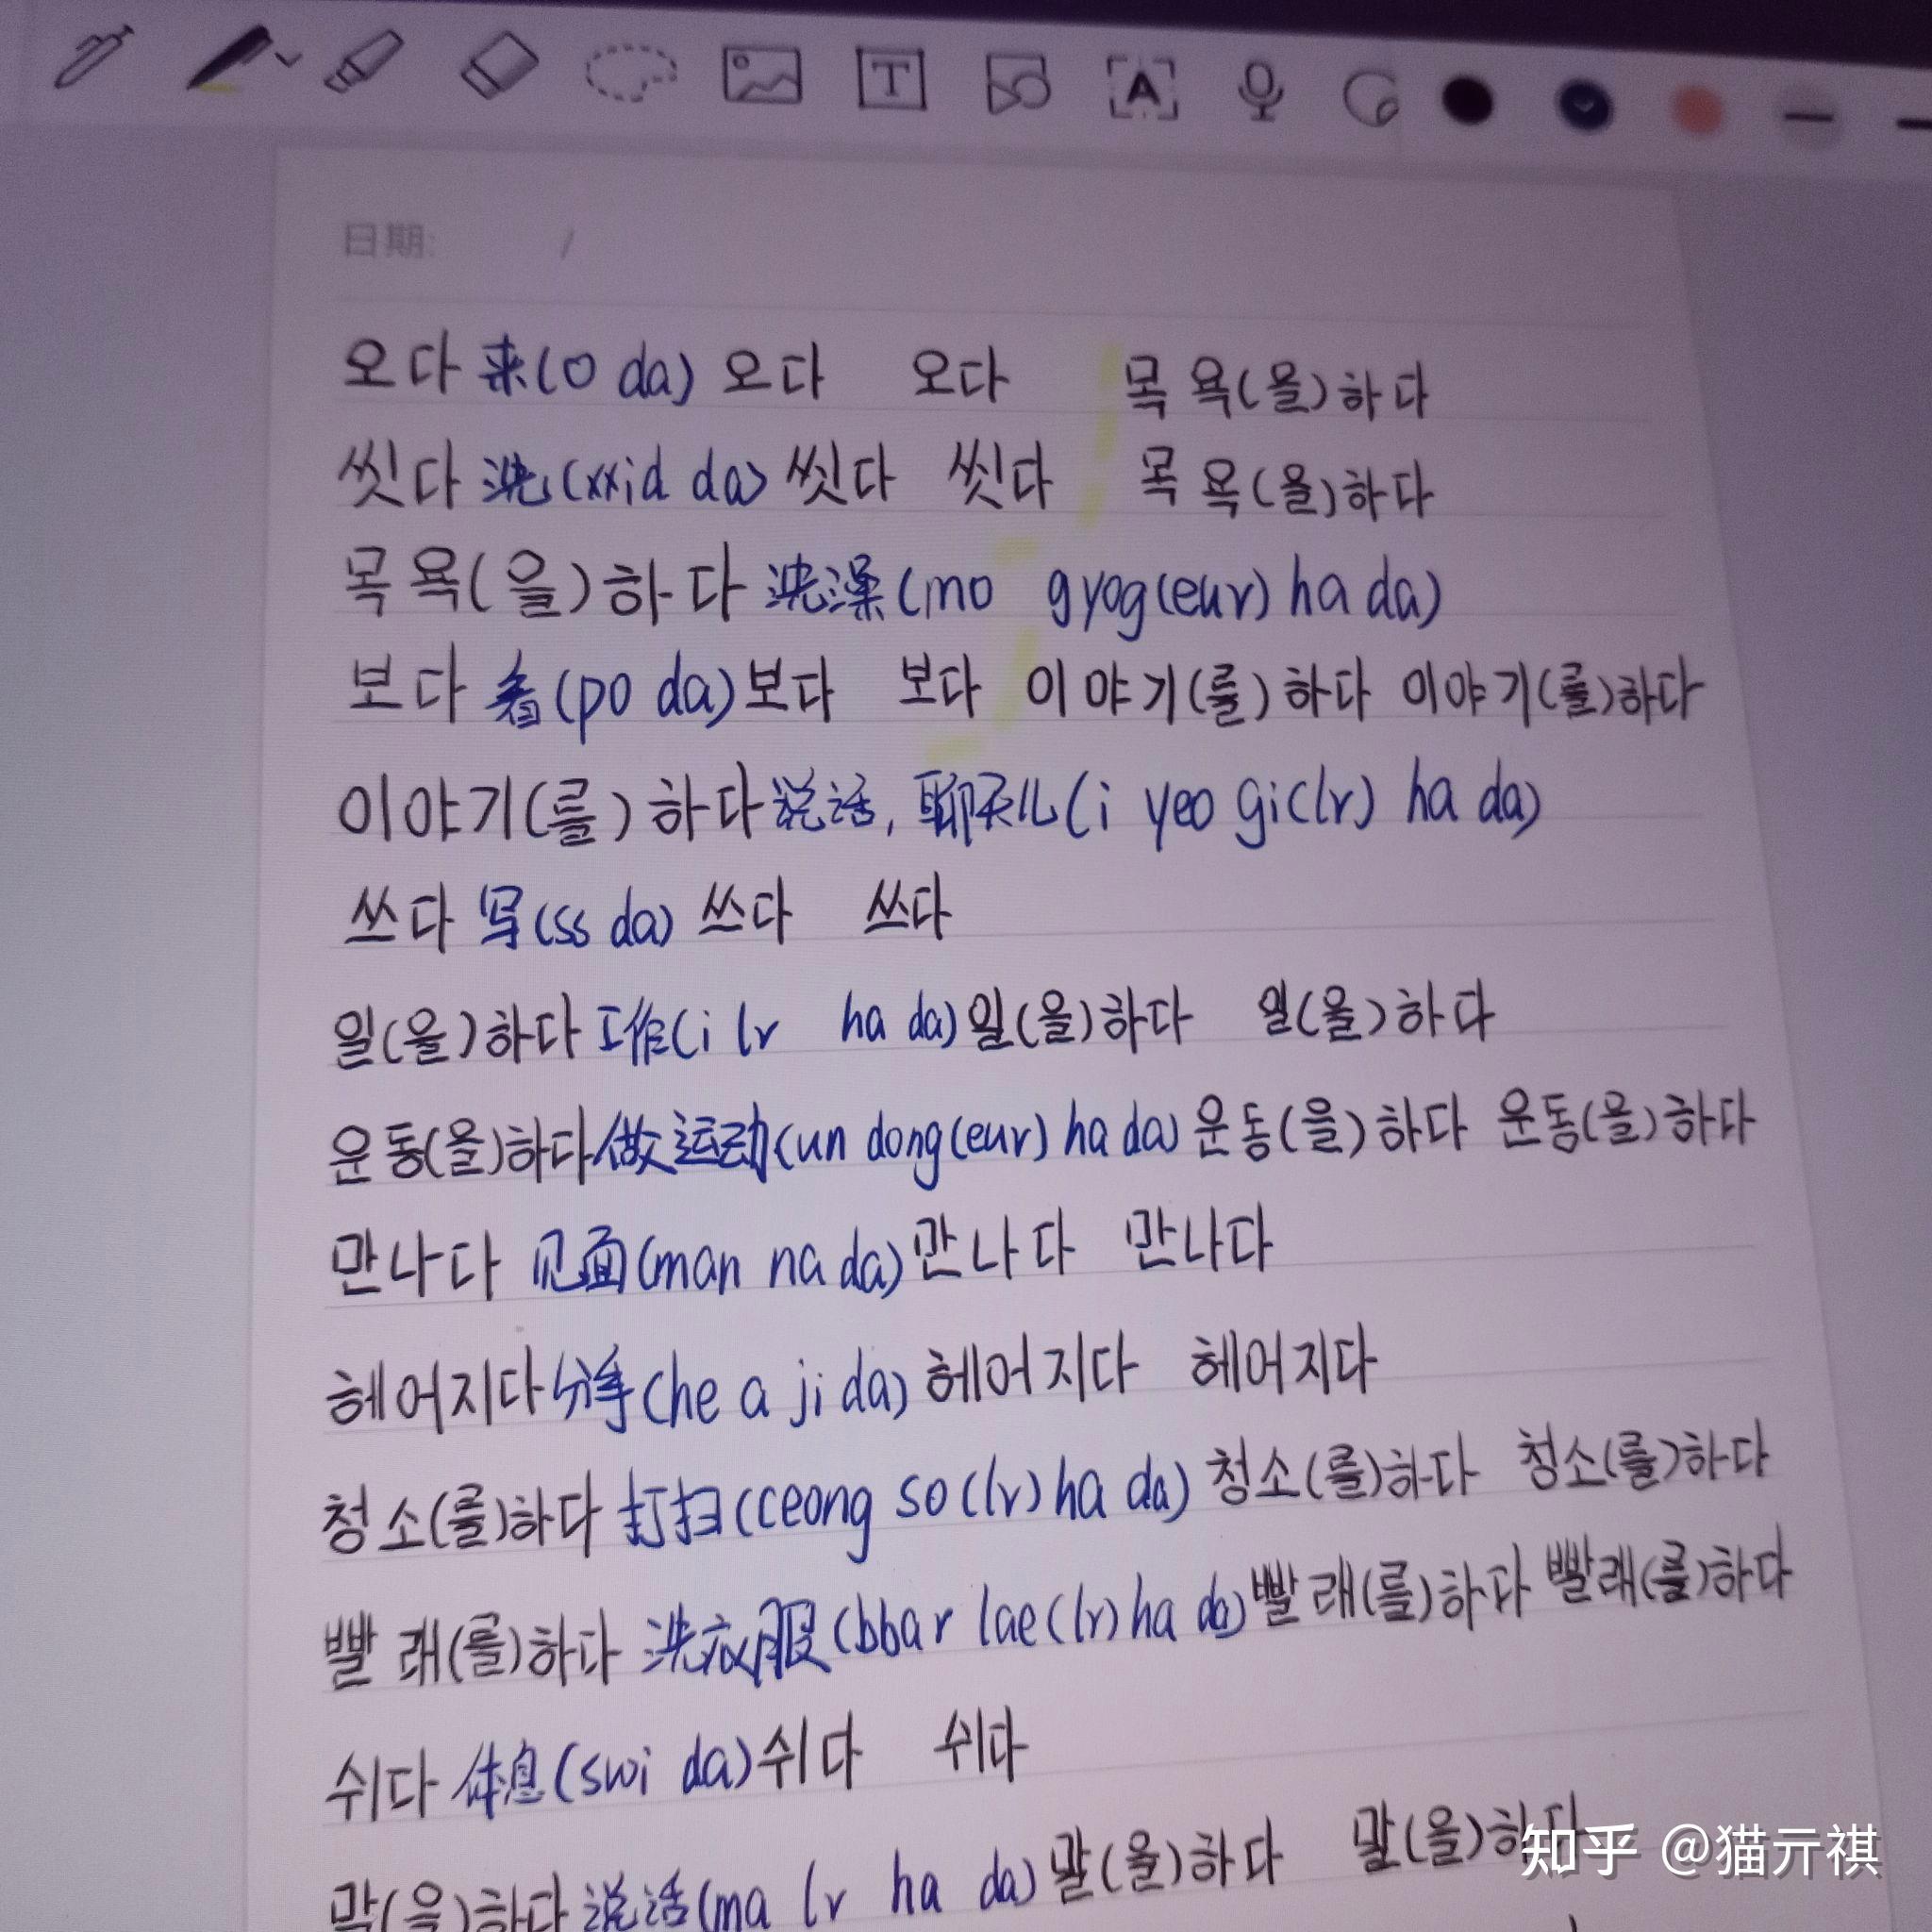 T A
日期: /
오다 来(o da) 오다 오다 목욕(을)하다
씻다 洗(xxid da) 씻다 씻다 목욕(을)하다
목욕(을)하다 洗澡(mo gyog(eur) ha da)
보다 看(po da) 보다 보다 이야기(를)하다 이야기(를)하다
이야기(를)하다 说话, 聊天儿(i yeo gi(lr) ha da)
쓰다 写(ss da) 쓰다 쓰다
일(을)하다 工作(i lr ha da) 일(을)하다 일(을)하다
운동(을)하다 做运动(un dong(eur) ha da) 운동(을)하다 운동(을)하다
만나다 见面(man na da) 만나다 만나다
헤어지다 分手(he a ji da) 헤어지다 헤어지다
청소(를)하다 打扫(ceong so(lr) ha da) 청소(를)하다 청소(를)하다
빨래(를)하다 洗衣服(bbar lae(lr) ha da) 빨래(를)하다 빨래(를)하다
쉬다 休息(swi da) 쉬다 쉬다
말(을)하다 说话(ma lr ha da) 말(을)하다 말(을)하다
知乎 @猫亓祺